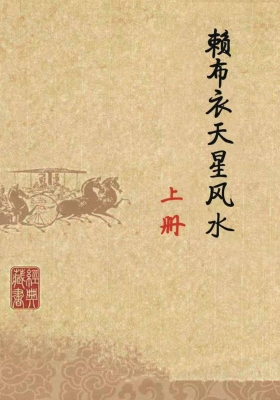 赖布衣天星风水
上册
經典
藏書